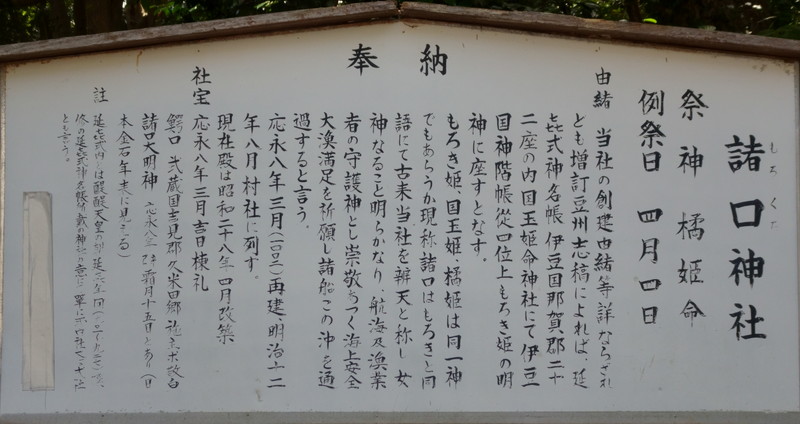 奉納
諸口神社
もろくち
祭神 橘姫命
例祭日 四月四日
由緒 当社の創建由緒等詳ならざれ
ども増訂豆州志稿によれば、延
㐂式神名帳伊豆国那賀郡二十
二座の内国玉姫命神社にて伊豆
国神階帳従四位上もろき姫の明
神に座すとなす。
もろき姫、国玉姫、橘姫は同一神
でもあらうか現称諸口はもろきと同
語にて古来当社を辨天と称し女
神なること明らかなり、航海及漁業
者の守護神とし崇敬あつく海上安全
大漁満足を祈願し諸船この沖を通
過すると言う。
応永八年三月(一四〇一)再建、明治十二
年八月村社に列す。
現在殿は昭和二十八年四月改築
社宝 応永八年三月吉日棟礼
鰐口 武蔵国吉見郡久米田郷
諸口大明神 霜月十五日とあり(日
本金石年表に見える)
註 延㐂式内とは醍醐天皇の
とも言う。